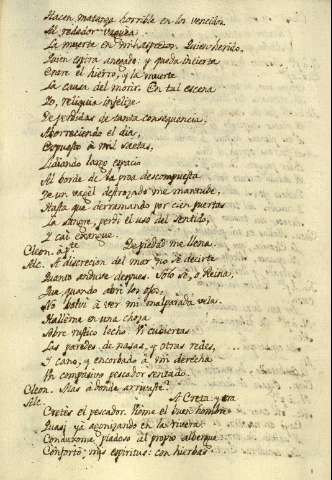 Hacen matanza horrible en los vencidos
Al rededor vaguea.
La muerte en mil aspectos. Quien herido,
Quien espira anegado; y queda incierta
Entre el hierro, y la muerte
La causa del morir. En tal escena
Yo, reliquia infelize
De perdidas de tanta consequencia,
Aborreciendo el dia,
Expuesto à mil saetas,
Lidiando largo espacio
Al borde de la proa descompuesta
De un vagel destrozado me mantube,
Hasta que derramando por cien puertas
La sangre, perdí el uso del sentido,
Y caí exangue.
Cleon. à pte. De piedad me llena.
Alc. A discrecion del mar yo no sè decirte
Quanto anduve despues. Solo sè, o Reina,
Que quando abri los ojos,
No bolvi à ver mi malparada vela.
Hallème en una choza
Sobre rustico lecho. Vi cubiertas
Las paredes de nasas, y otras redes,
Y cano, y encorbado à mi derecha
Un compasivo pescador sentado.
Cleon. Mas à donde arrivaste?
Alc. A Creta: y era
Cretés el pescador. Viòme el buen hombre
Quasi yà agonizando en la rivera
Conduxome piadoso al propio albergue
Confortò mis espiritus: con hierbas